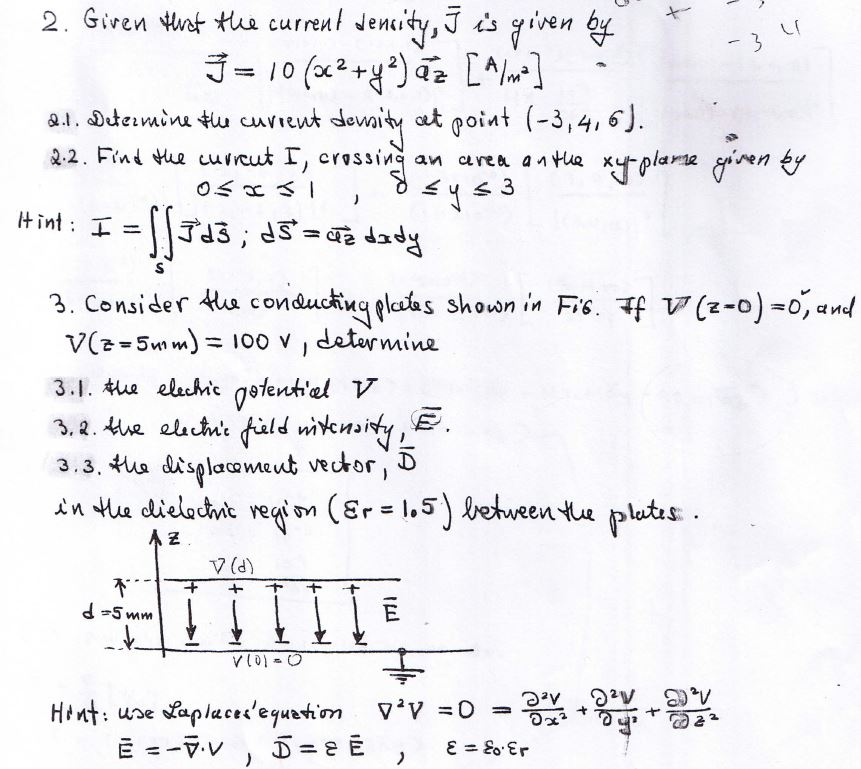 2. Given that the current density, J̄ is given by
J⃗ = 10 (x² + y²) a⃗z [A/m²]
2.1. Determine the current density at point (-3, 4, 6).
2.2. Find the current I, crossing an area on the xy-plane given by
0 ≤ x ≤ 1 , 0 ≤ y ≤ 3
Hint: I = ∬ J⃗ dS̄ ; dS̄ = a⃗z dxdy
S
3. Consider the conducting plates shown in FIG. If V (z=0) = 0, and
V(z=5mm) = 100 V, determine
3.1. the electric potential V
3.2. the electric field intensity, Ē.
3.3. the displacement vector, D̄
in the dielectric region (εr = 1.5) between the plates.
Z
V(d)
+ + + + +
d = 5 mm Ē
V(0) = 0
Hint: use Laplaces' equation ∇²V = 0 = ∂²V/∂x² + ∂²V/∂y² + ∂²V/∂z²
Ē = -∇̄·V , D̄ = ε Ē , ε = ε₀·εr